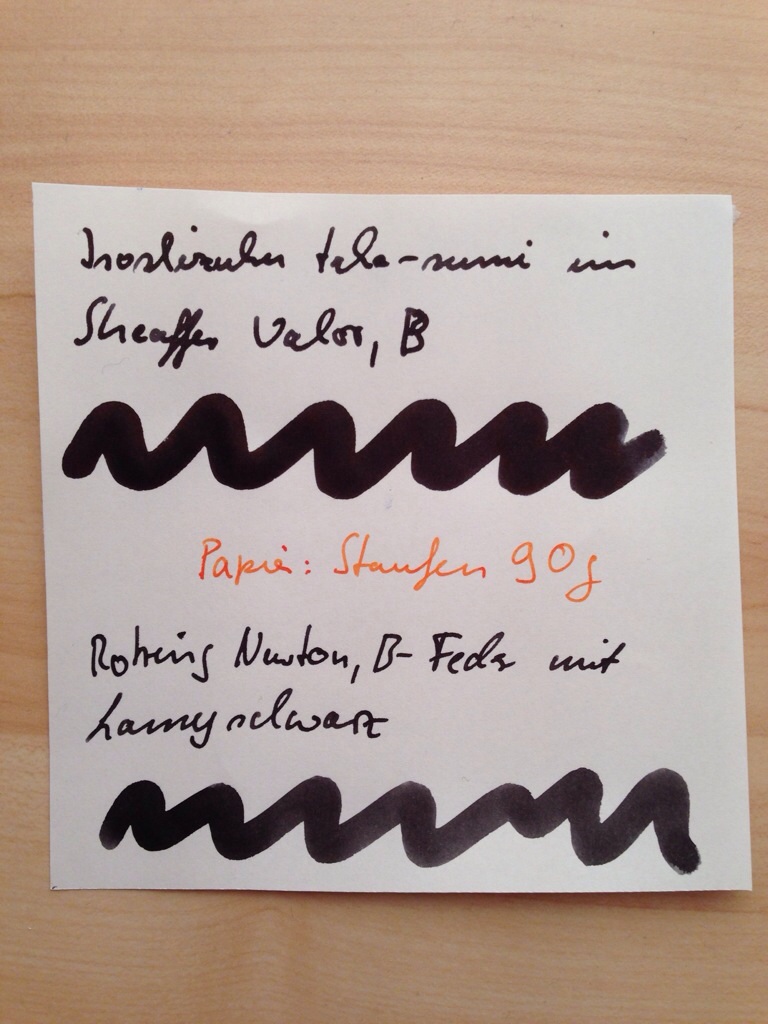 Iroshizuku take-sumi im
Sheaffer Valor, B
Papier: Staufen 90g
Rotring Newton, B-Feder mit
Lamy schwarz